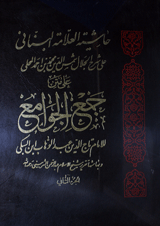 حاشية العلامة البناني
على شرح الجلال شمس الدين محمد بن أحمد المحلي
على متن
جمع الجوامع
للإمام تاج الدين عبد الوهاب ابن السبكي
الجزء الثاني